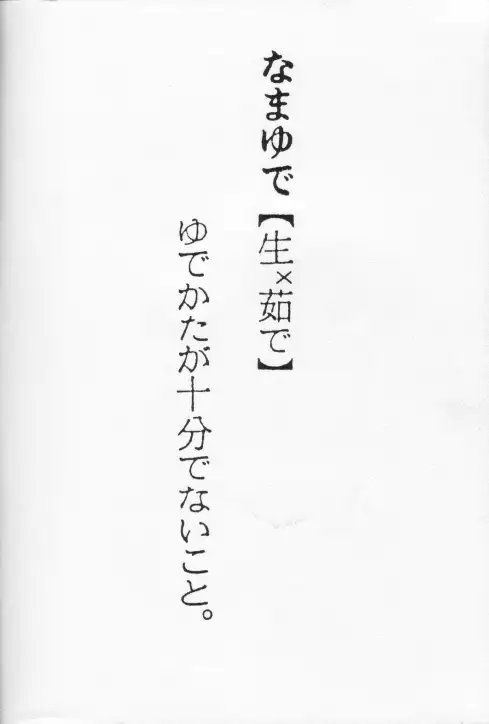 なまゆで【生×茹で】
ゆでかたが十分でないこと。